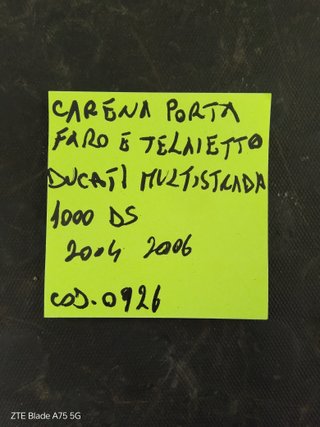 CARENA PORTA
FARO E TELAIETTO
DUCATI MULTISTRADA
1000 DS
2004 2006
COD. 0926
ZTE Blade A75 5G